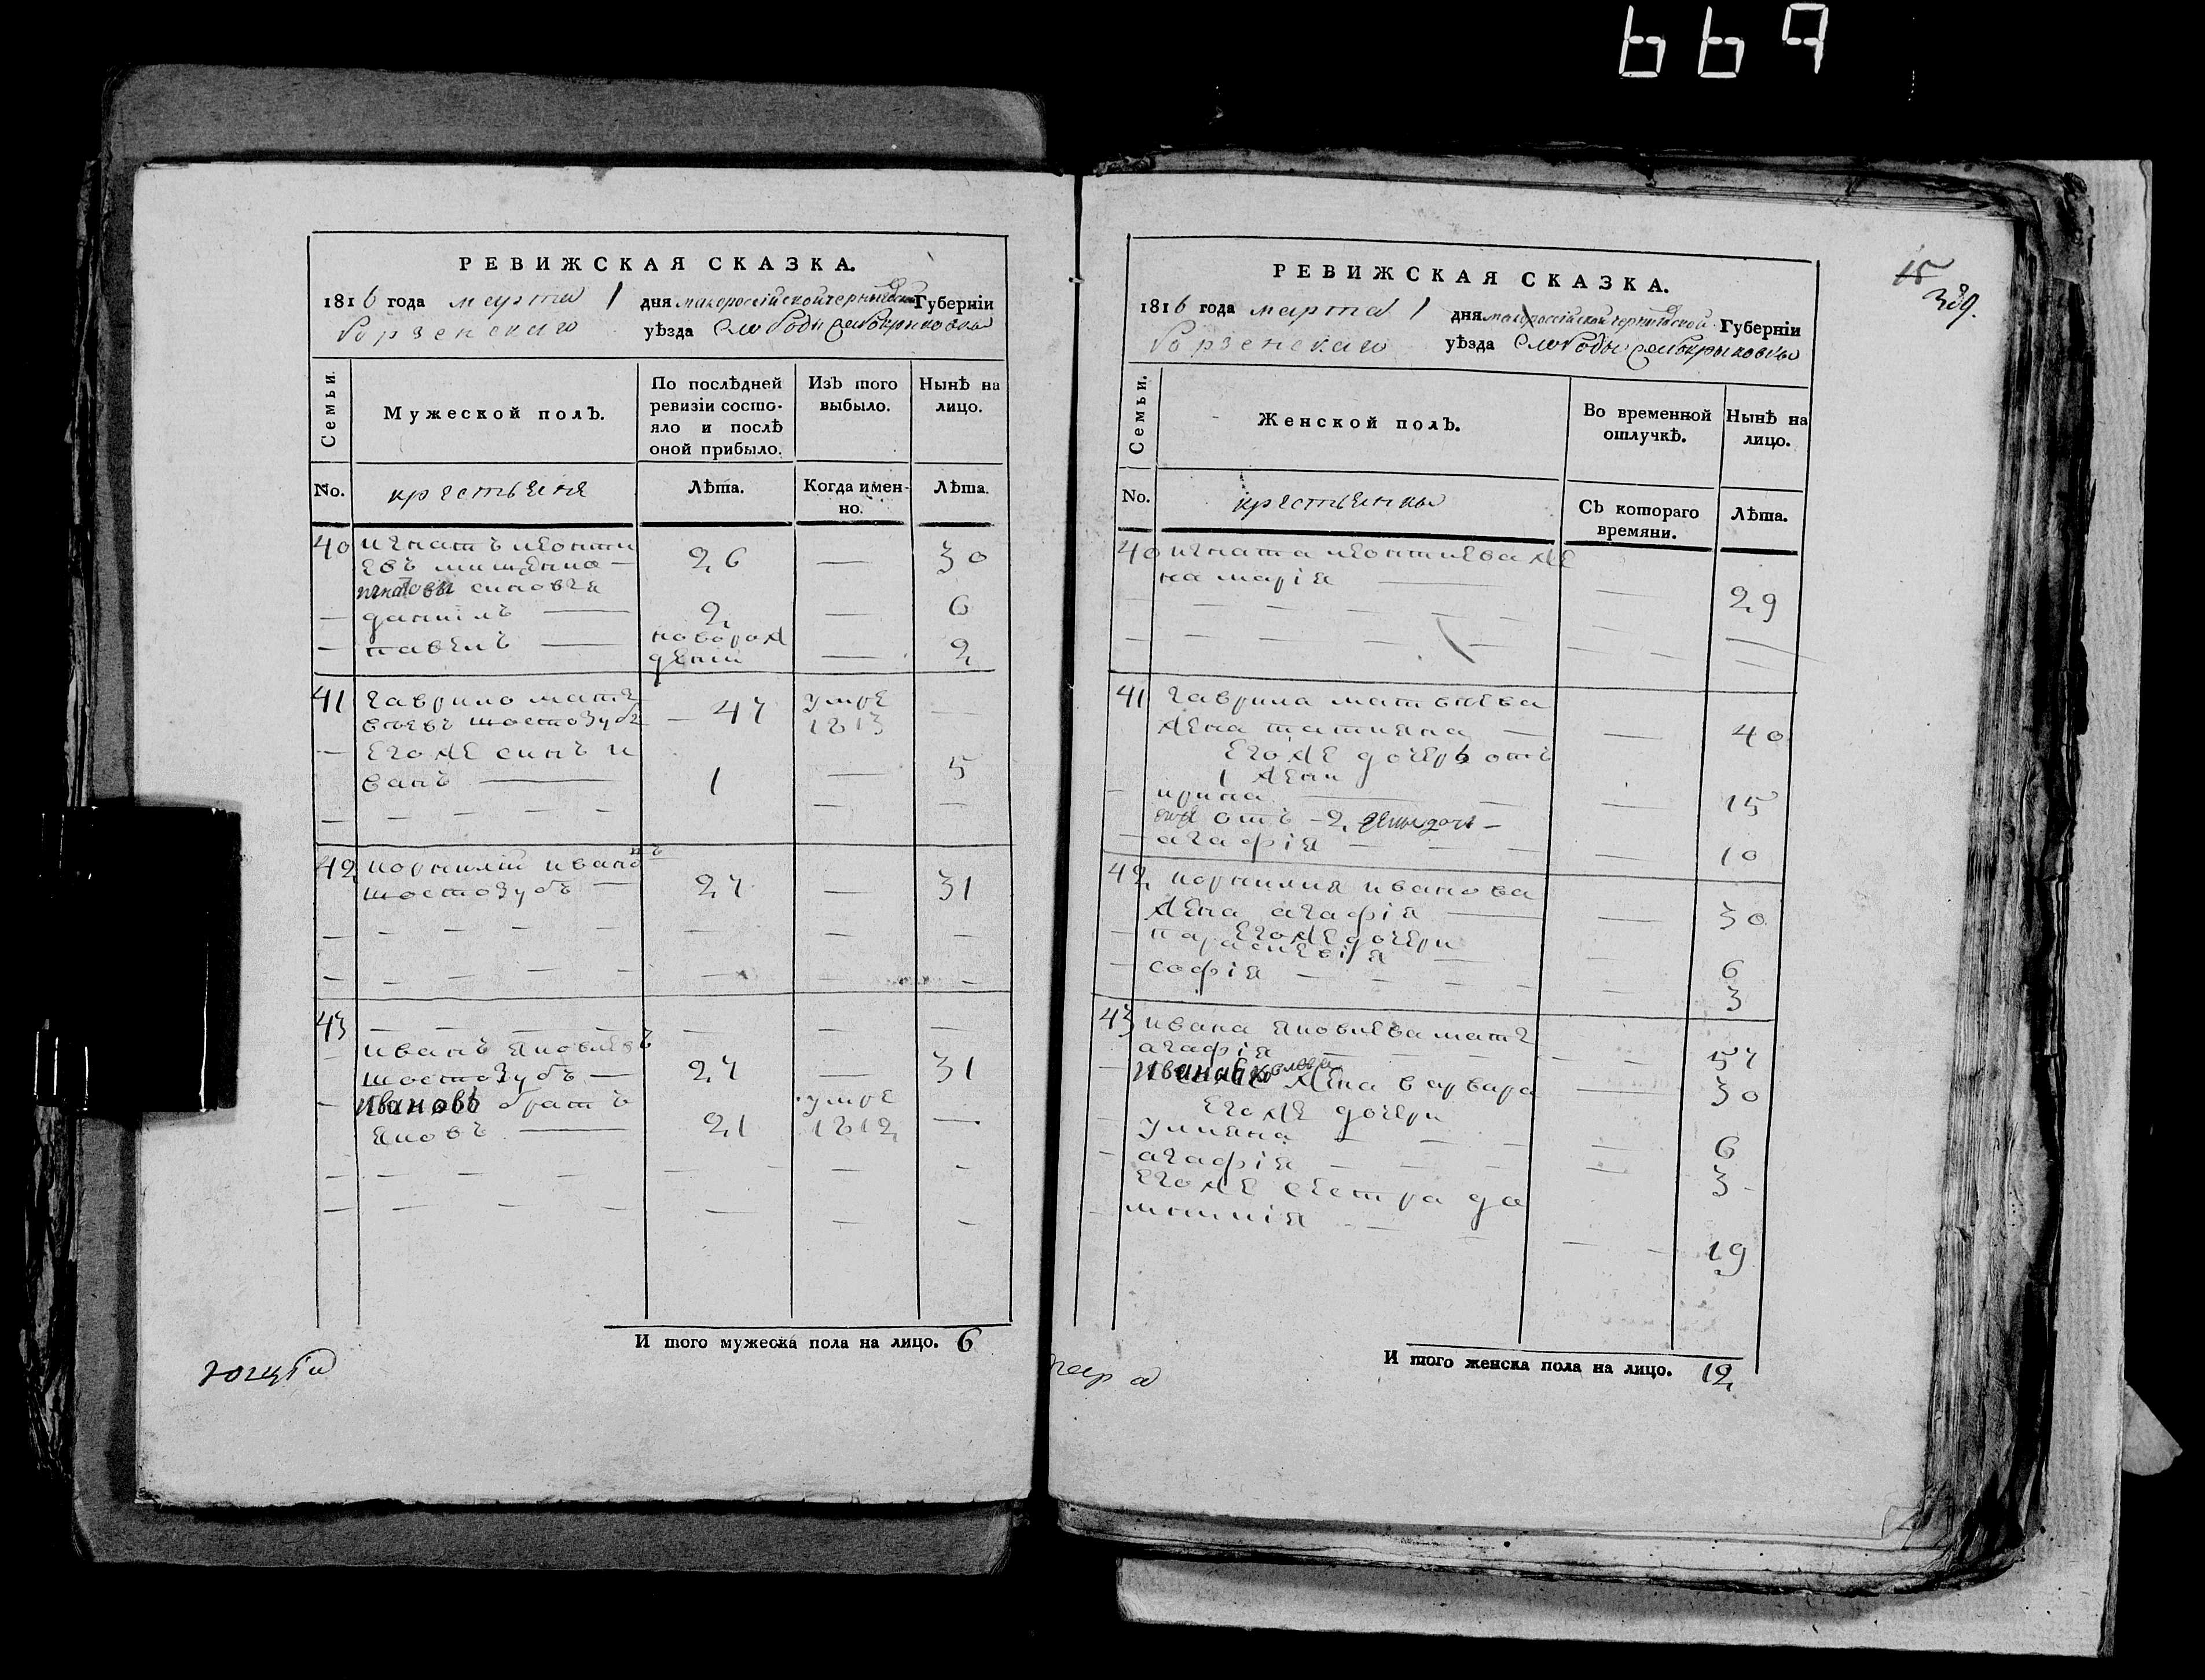 669
РЕВИЖСКАЯ СКАЗКА.
1816 года марта 1 дня малороссійской черниговской Губерніи
борзенскаго уѣзда слободы
Семьи.
Мужеской полъ.
По послѣдней ревизіи состо-
яло и послѣ
оной прибыло.
Изъ того
выбыло.
Нынѣ на
лицо.
No.
крестьяня
Лѣта.
Когда имен-
но.
Лѣта.
40 игнатъ леонти
евъ 26 — 30
игнатовы синовья
— даниилъ — 2 — 6
— павелъ — новорож
дений — 2
41 гаврило матв
еевъ шостозубъ — 47 умре 1813 —
— его же синъ и
ванъ — 1 — 5
42 корнилій ивановъ
шостозубъ — 27 — 31
43
— иванъ яковлевъ
шостозубъ — 27 — 31
— Ивановъ братъ
яковъ — 21 умре 1812 —
И того мужеска пола на лицо. 6
15
389.
РЕВИЖСКАЯ СКАЗКА.
1816 года марта 1 дня малороссійской черниговской Губерніи
борзенскаго уѣзда слободы
Семьи.
Женской полъ.
Во временной
отлучкѣ.
Нынѣ на
лицо.
No.
крестьянки
Съ котораго
времяни.
Лѣта.
40 игната леонтиева же
на марія — 29
41 гаврила матвиева
жена татияна — 40
его же дочерь отъ
1 жени
— ирина — 15
отъ 2 жены дочь
— агафія — 10
42 корнилия иванова
жена агафія — 30
его же дочери
— параскевія — 6
— софія — 3
43 ивана яковлева мать
агафія — 57
— Ивана Яковлева жена варвара — 30
его же дочери
— улияна — 6
— агафія — 3
его же сестра до
— мникія — 19
И того женска пола на лицо. 12